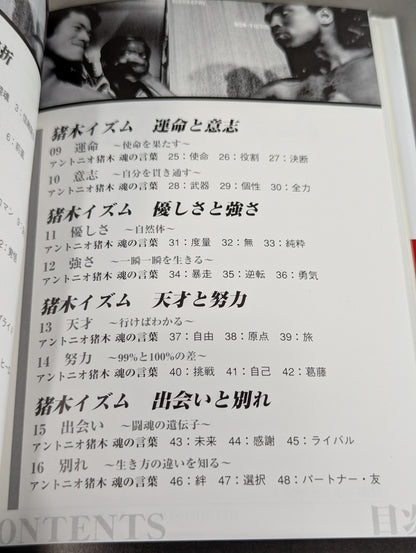 折
猪木イズム 運命と意志
09 運命 ～使命を果たす～
アントニオ猪木 魂の言葉 25：使命 26：役割 27：決断
10 意志 ～自分を貫き通す～
アントニオ猪木 魂の言葉 28：武器 29：個性 30：全力
猪木イズム 優しさと強さ
11 優しさ ～自然体～
アントニオ猪木 魂の言葉 31：度量 32：無 33：純粋
12 強さ ～一瞬一瞬を生きる～
アントニオ猪木 魂の言葉 34：暴走 35：逆転 36：勇気
猪木イズム 天才と努力
13 天才 ～行けばわかる～
アントニオ猪木 魂の言葉 37：自由 38：原点 39：旅
14 努力 ～99%と100%の差～
アントニオ猪木 魂の言葉 40：挑戦 41：自己 42：葛藤
猪木イズム 出会いと別れ
15 出会い ～闘魂の遺伝子～
アントニオ猪木 魂の言葉 43：未来 44：感謝 45：ライバル
16 別れ ～生き方の違いを知る～
アントニオ猪木 魂の言葉 46：絆 47：選択 48：パートナー・友
ONTENTS 目次